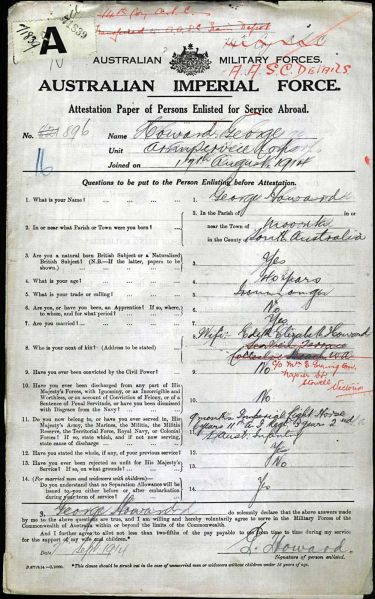 A
IV
AUSTRALIAN MILITARY FORCES.
A.A.S.C. Details
AUSTRALIAN IMPERIAL FORCE.
Attestation Paper of Persons Enlisted for Service Abroad.
No. 896 Name Howard George
Unit Army Service Corps
Joined on 17th August 1914
16
Questions to be put to the Person Enlisting before Attestation.
1. What is your Name? 1. George Howard
2. In or near what Parish or Town were you born? 2. In the Parish of in or
near the Town of Moonta
in the County of South Australia
3. Are you a natural born British Subject or a Naturalized
British Subject? (N.B.—If the latter, papers to be
shown). 3. Yes
4. What is your age? 4. 40 years
5. What is your trade or calling? 5. Ironmonger
6. Are you, or have you been, an Apprentice? If so, where,
to whom, and for what period? 6. No
7. Are you married? 7. Yes
8. Who is your next of kin? (Address to be stated) 8. Wife: Edith Elizabeth Howard
Terrace
Cottesloe Beach W.A.
c/o Mrs E
Napier St
Victoria
9. Have you ever been convicted by the Civil Power? 9. No
10. Have you ever been discharged from any part of His
Majesty's Forces, with Ignominy, or as Incorrigible and
Worthless, or on account of Conviction of Felony, or of a
Sentence of Penal Servitude, or have you been dismissed
with Disgrace from the Navy? 10. No
11. Do you now belong to, or have you ever served in, His
Majesty's Army, the Marines, the Militia, the Militia
Reserve, the Territorial Force, Royal Navy, or Colonial
Forces? If so, state which, and if not now serving,
state cause of discharge 11. 9 months Imperial Light Horse
years 11th A I Regt 3 years 2nd
Aust. Infantry
12. Have you stated the whole, if any, of your previous service? 12. Yes
13. Have you ever been rejected as unfit for His Majesty's
Service? If so, on what grounds? 13. No
14. (For married men and widowers with children)—
Do you understand that no Separation Allowance will be
issued to you either before or after embarkation
during your term of service? 14. Yes
I, George Howard do solemnly declare that the above answers made
by me to the above questions are true, and I am willing and hereby voluntarily agree to serve in the Military Forces of the
Commonwealth of Australia within or beyond the limits of the Commonwealth.
And I further agree to allot not less than two-fifths of the pay payable to me from time to time during my service
for the support of my wife and children.
Date Sept 1914 G. Howard
Signature of person enlisted.
*This clause should be struck out in the case of unmarried men or widowers without children under 18 years of age.